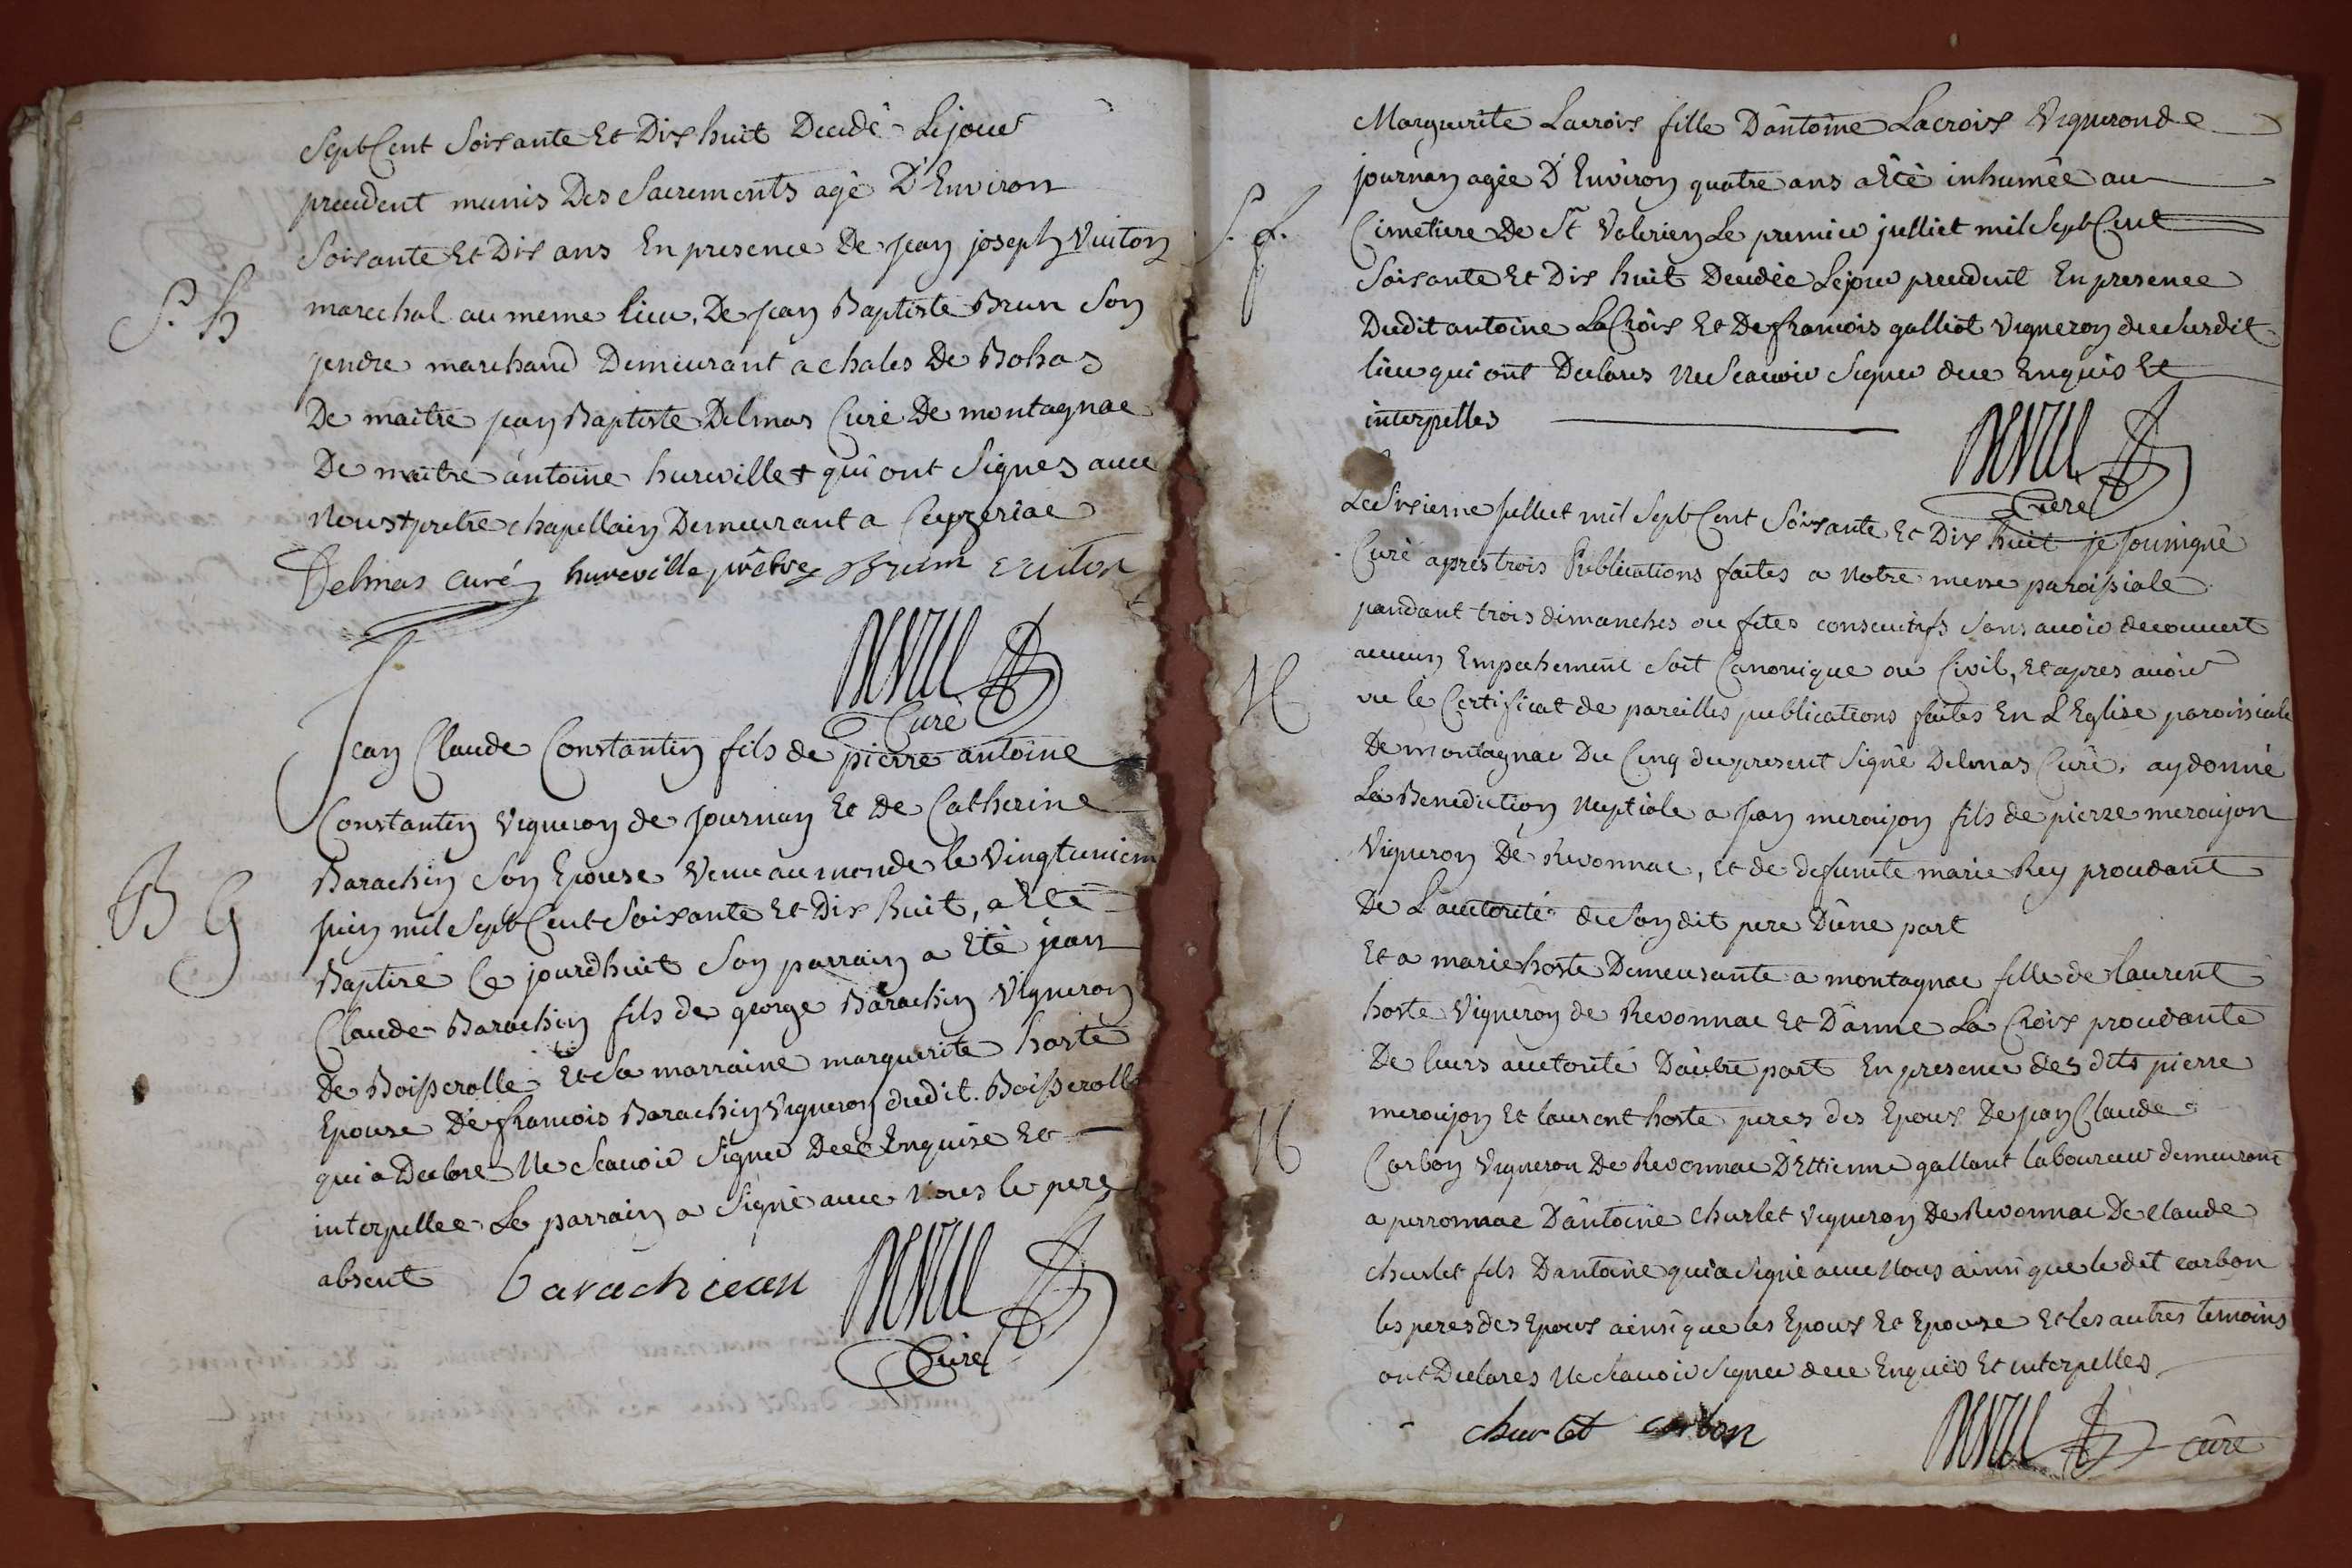 Sept Cent Soixante Et Dix huit Decedé Le jour
precedent munis Des Sacrements agé D'Environ
Soixante Et Dix ans En presence De jean joseph Vuiton
S. h
marechal au meme lieu, De jean Baptiste Brun Son
gendre marchand Demeurant a chales De Bohas
De maitre jean Baptiste Delmas Curé De montagnac
De maitre antoine hureville + qui ont Signes avec
Nous + pretre chapellain Demeurant a Ceyzeriac
Delmas curé hureville prêtre Brun Vuiton
Curé
Jean Claude Constantin fils de pierre antoine
Constantin Vigneron de Journan Et De Catherine
Barachin Son Epouse Venu au monde le Vingtuniem
B G
juin mil Sept Cent Soixante Et Dix huit, a Eté
Baptisé Ce jourdhuit Son parrain a Eté jean
Claude Barachin fils de george Barachin Vigneron
De Boisserolle Et Sa marraine marguerite hoste
Epouse De francois Barachin Vigneron dudit Boisserolle
qui a Declare Ne Scavoir Signer De ce Enquise Et
interpellee Le parrain a Signé avec Nous le pere
absent barachiean
Curé
Marguerite Lacroix fille D'antoine Lacroix Vigneron de
journan agée D'Environ quatre ans a Eté inhumée au
S. f.
Cimetiere De St Valerien Le premier julliet mil Sept Cent
Soixante Et Dix huit Decedée Le jour precedent En presence
Dudit antoine LaCroix Et De francois galliot Vigneron du Susdit
lieu qui ont Declares Ne Scavoir Signer de ce Enquis Et
interpelles
Curé
Le Sixieme Julliet mil Sept Cent Soixante Et Dix huit je Sousigné
Curé apres trois Publications faites a Notre messe paroissiale
pandant trois dimanches ou fetes consecutifs Sans avoir decouvert
aucun Empechement Soit Canonique ou Civil, Et apres avoir
M
vu le Certificat de pareilles publications faites En L'Eglise paroissiale
De montagnac Du Cinq du present Signé Delmas Curé, ay donné
La Benediction Nuptiale a jean meroujon fils de pierre meroujon
Vigneron De Revonnac, et de defunte marie Rey procedant
De L'auctorité de Son dit pere D'une part
Et a marie hoste Demeurante a montagnac fille de laurent
hoste Vigneron de Revonnac Et D'anne La Croix procedante
De leurs auctorité D'autre part En presence des dits pierre
meroujon Et laurent hoste peres des Epoux De jean Claude
M
Carbon Vigneron De Revonnac D'Ettienne gallant laboureur demeurant
a perronnac D'antoine Churlet vigneron De Revonnac De Claude
churlet fils D'antoine qui a Signé avec Nous ainsi que le dit carbon
les peres des Epoux ainsi que les Epoux Et Epouse Et les autres temoins
ont Declares Ne Scavoir Signer de ce Enquis Et interpelles
churlet carbon
curé